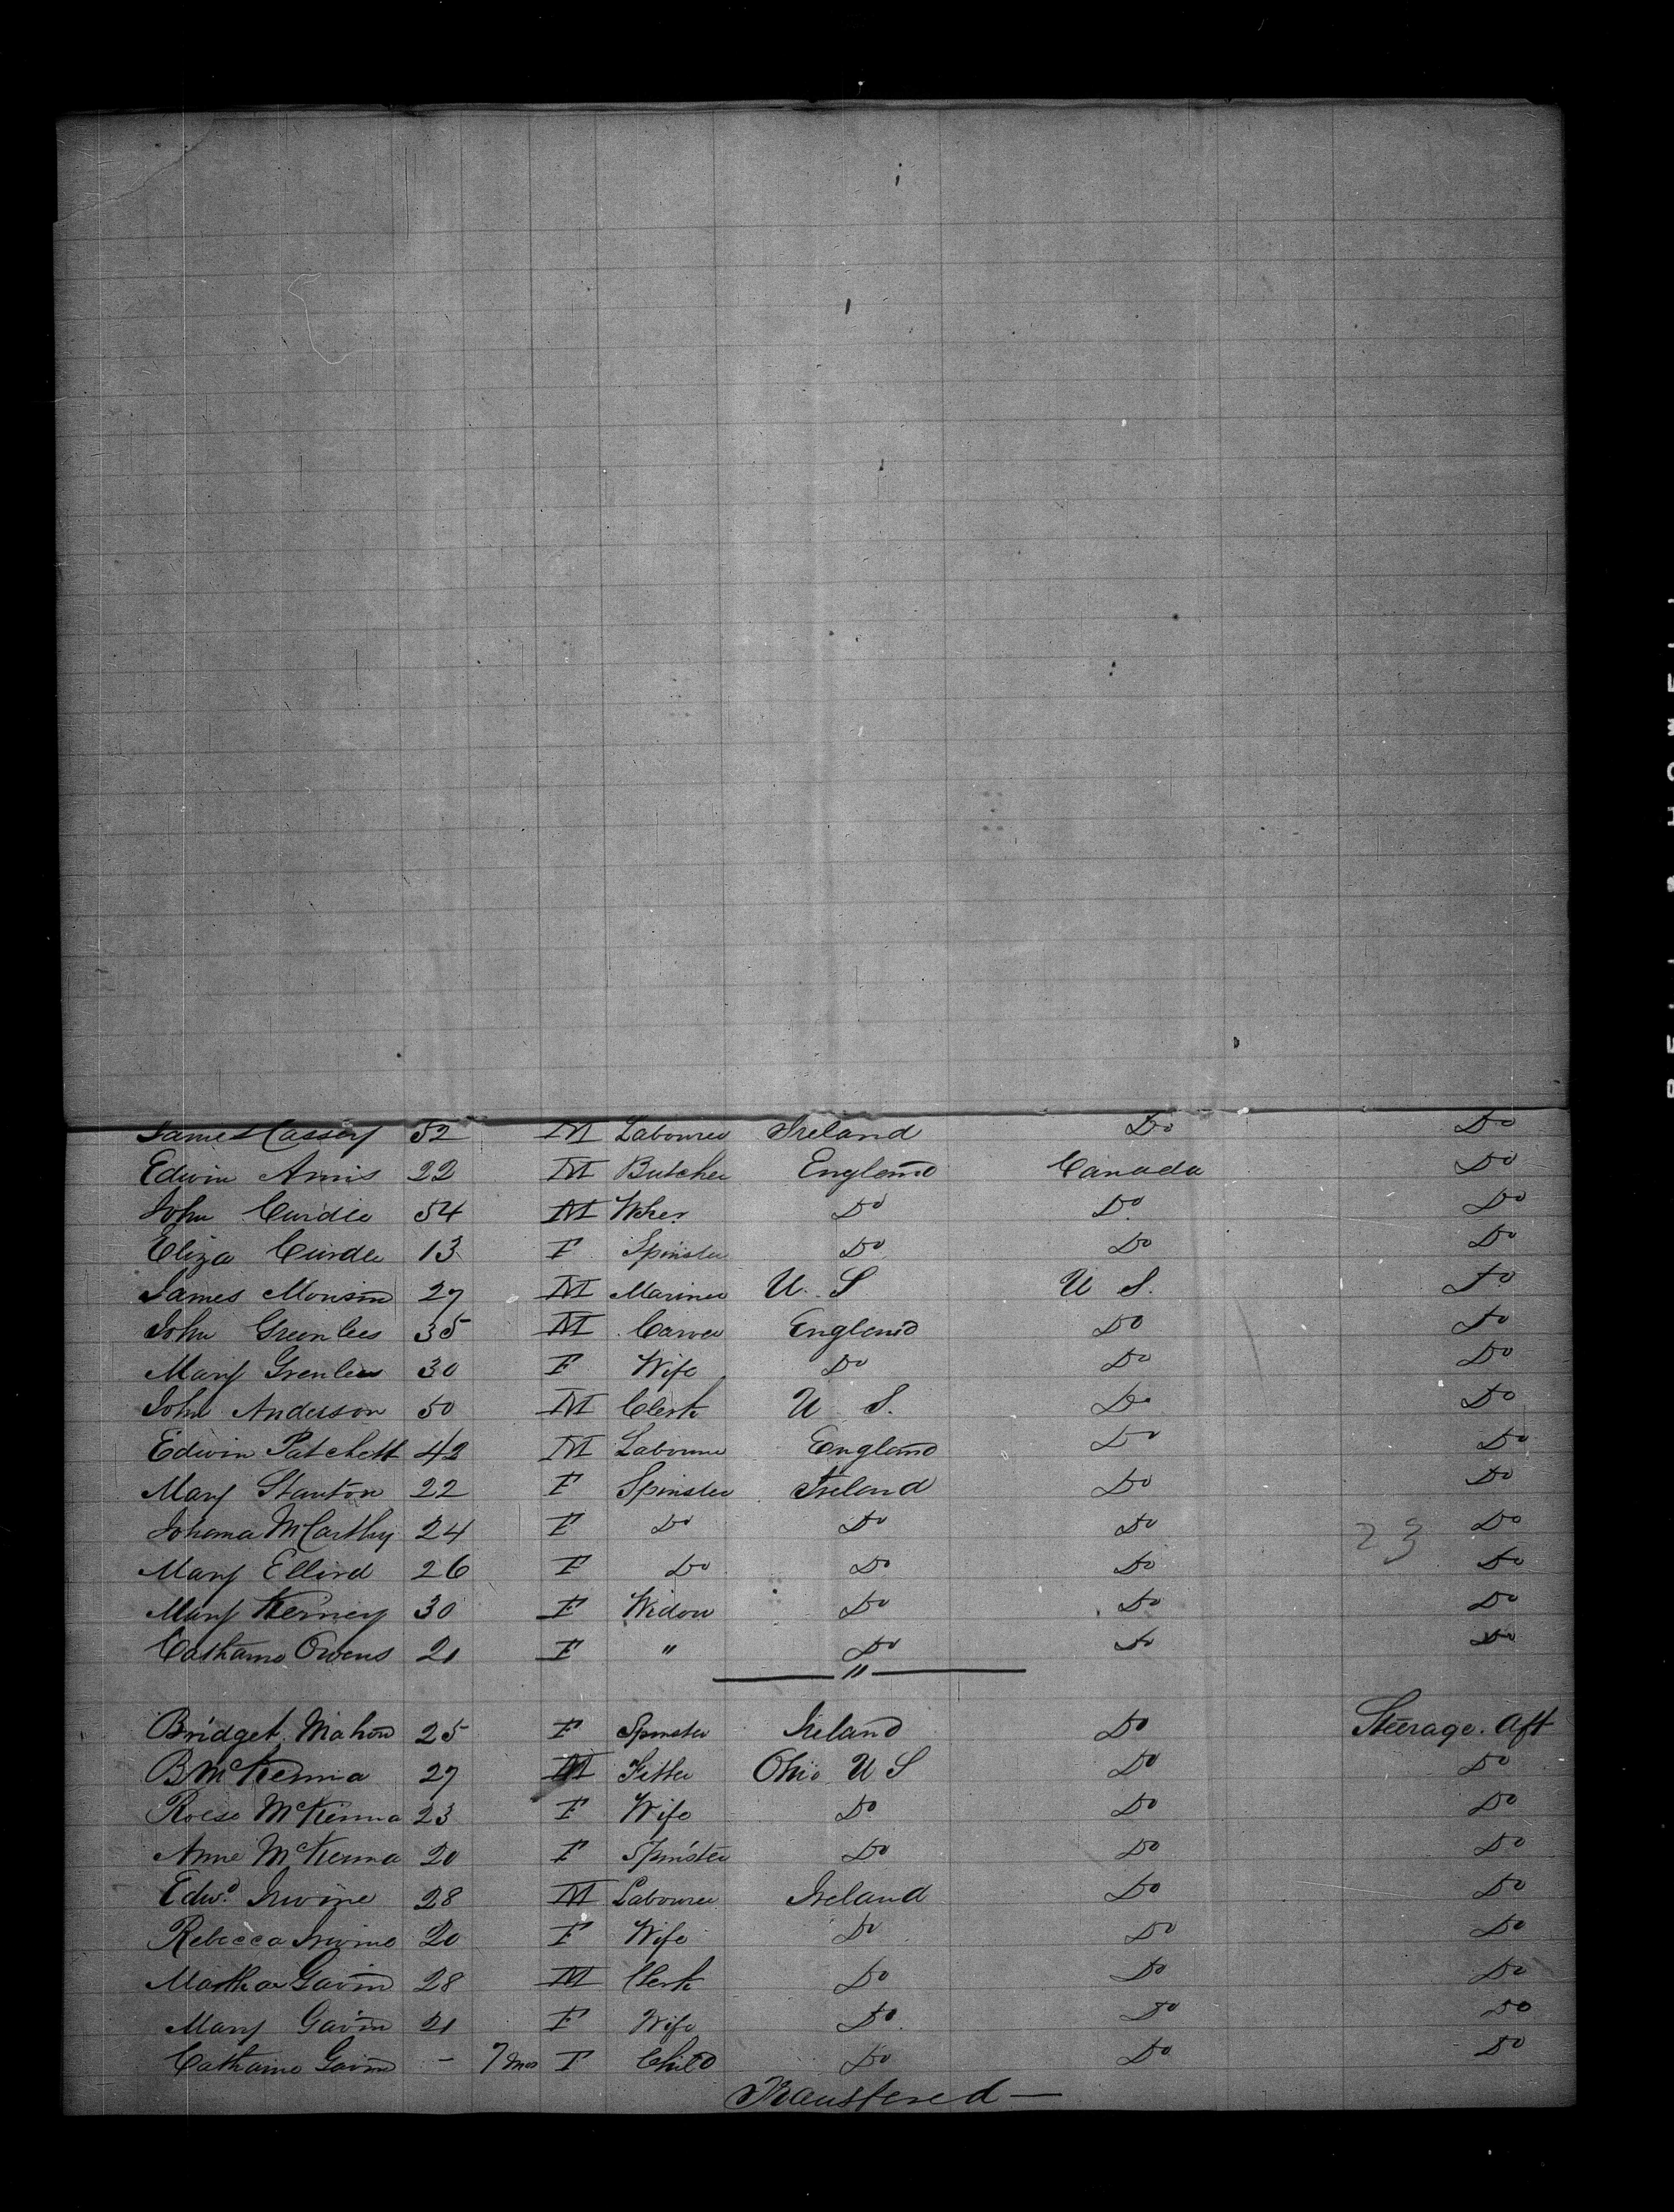 James Cassey 52 M Labourer Ireland Do Do
Edwin Annis 22 M Butcher England Canada Do
John Curdle 54 M Do Do Do
Eliza Curdle 13 F Spinster Do Do Do
James Monsin 27 M Mariner U.S U S. Do
John Greenlees 35 M Carver England Do Do
Mary Grenlees 30 F Wife Do Do Do
John Anderson 50 M Clerk U S. Do Do
Edwin Patchett 42 M Labourer England Do Do
Mary Stanton 22 F Spinster Ireland Do Do
Johanna McCarthy 24 F Do Do Do 23 Do
Mary Ellird 26 F Do Do Do Do
Mary Kerney 30 F Widow Do Do Do
Catharine Owens 21 F " Do Do Do
— " —
Bridget Mahon 25 F Spinster Ireland Do Steerage. Aft
B McKenna 27 M Fitter Ohio U S Do Do
Roese McKenna 23 F Wife Do Do Do
Anne McKenna 20 F Spinster Do Do Do
Edwd. Irvine 28 M Labourer Ireland Do Do
Rebecca Irvine 20 F Wife Do Do Do
Gavin 28 M Clerk Do Do Do
Mary Gavin 21 F Wife Do. Do Do
Catharine Gavin - 7 mos F Child Do Do Do
Transfered —